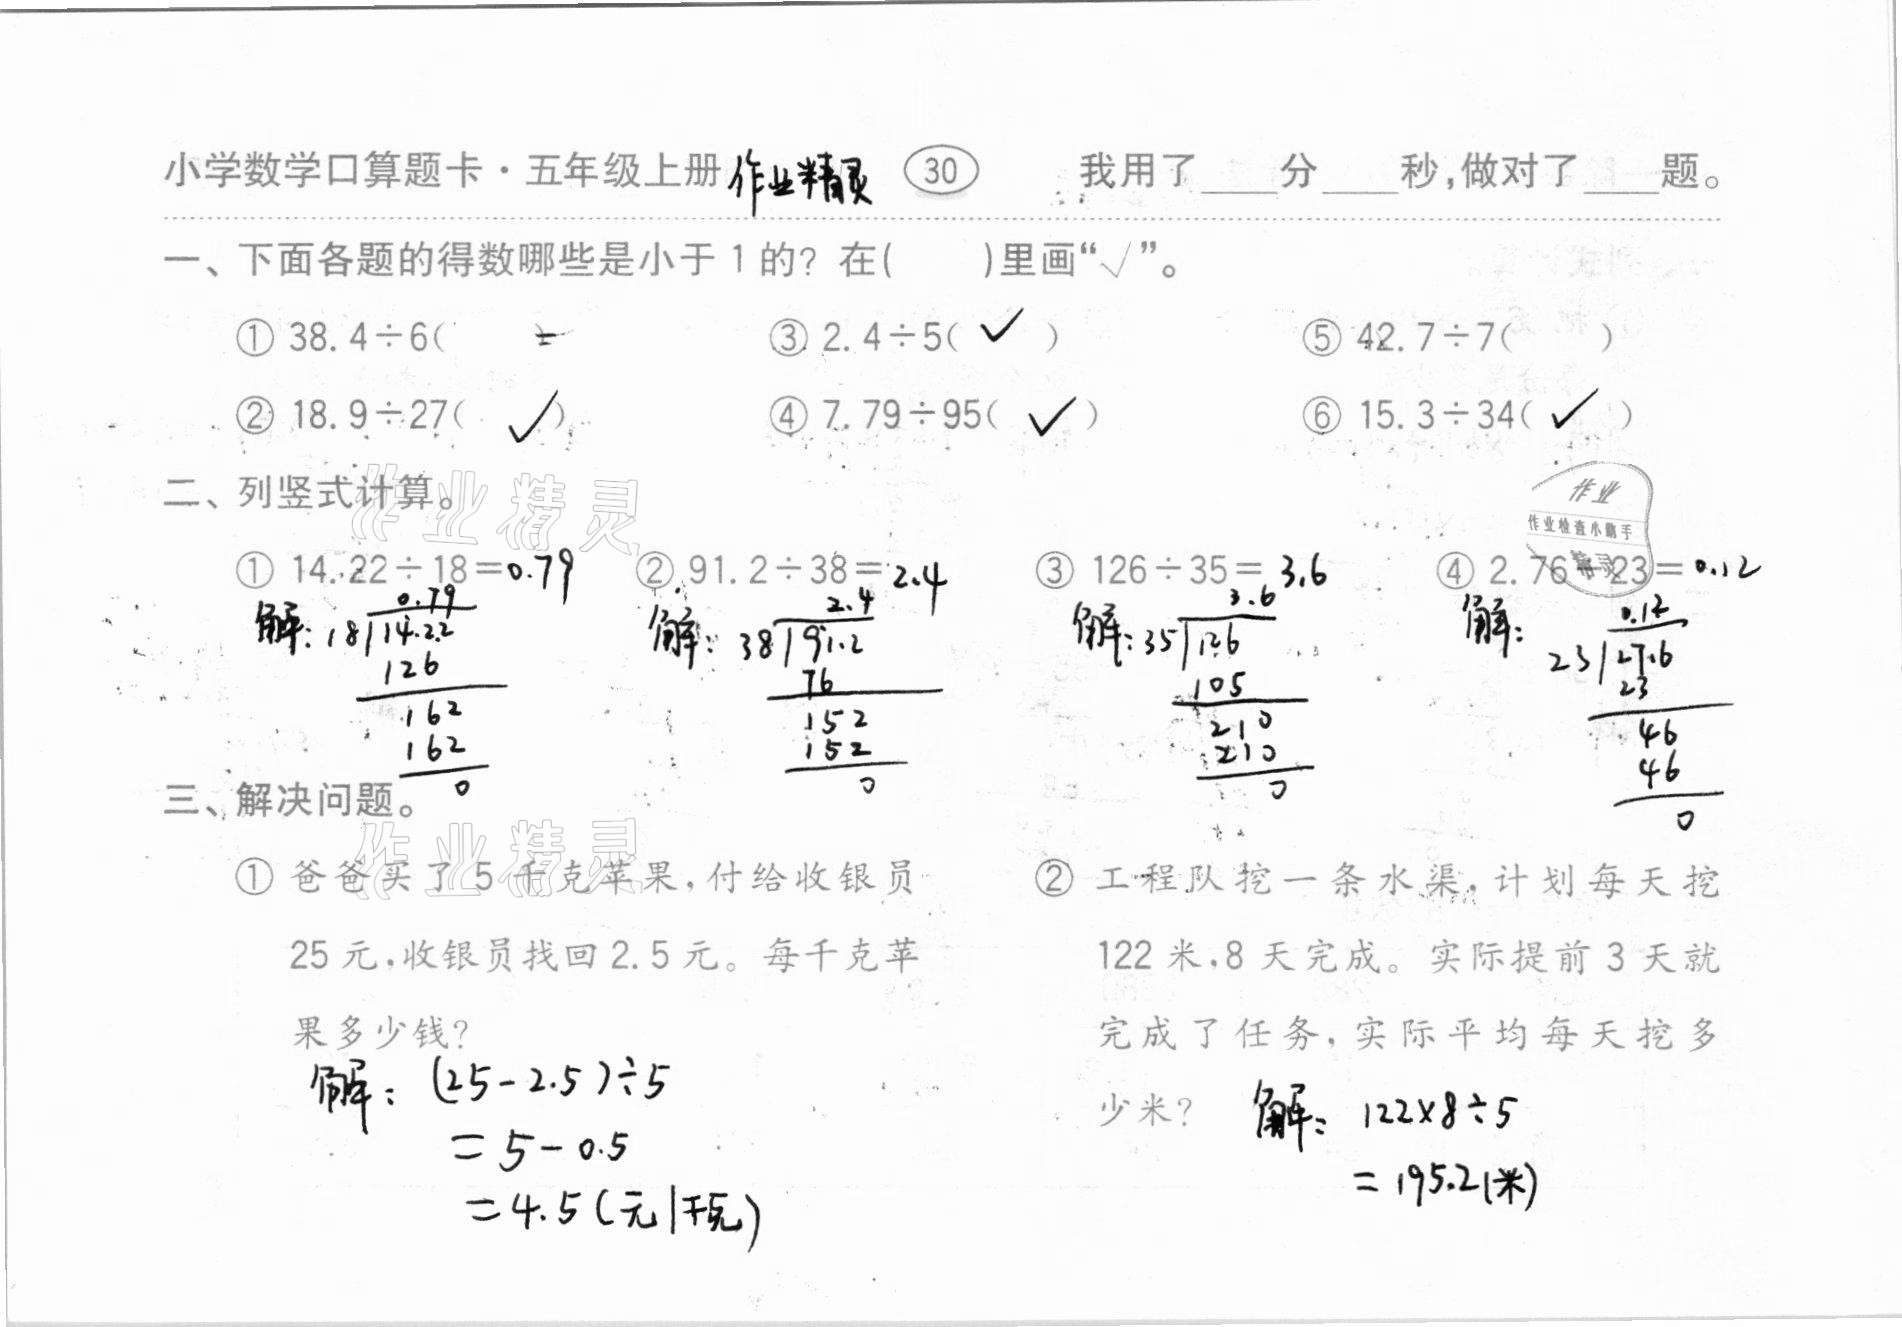 小学数学口算题卡·五年级上册 作业精灵 30 我用了____分____秒,做对了____题。
一、下面各题的得数哪些是小于 1 的? 在(  )里画“√”。
① 38.4÷6(  ) ③ 2.4÷5( ✓ ) ⑤ 42.7÷7(  )
② 18.9÷27( ✓ ) ④ 7.79÷95( ✓ ) ⑥ 15.3÷34( ✓ )
二、列竖式计算。
作业精灵
作业
作业检查小助手
精灵
① 14.22÷18=0.79 ② 91.2÷38=2.4 ③ 126÷35=3.6 ④ 2.76÷23=0.12
0.79 2.4 3.6 0.12
解: 18 14.22 解: 38 91.2 解: 35 126 解: 23 27.6
126 76 105 23
162 152 210 46
162 152 210 46
0 0 0 0
三、解决问题。
作业精灵
① 爸爸买了 5 千克苹果,付给收银员
25 元,收银员找回 2.5 元。每千克苹
果多少钱?
解: (25-2.5)÷5
=5-0.5
=4.5(元|千克)
② 工程队挖一条水渠,计划每天挖
122 米,8 天完成。实际提前 3 天就
完成了任务,实际平均每天挖多
少米? 解: 122×8÷5
=195.2(米)